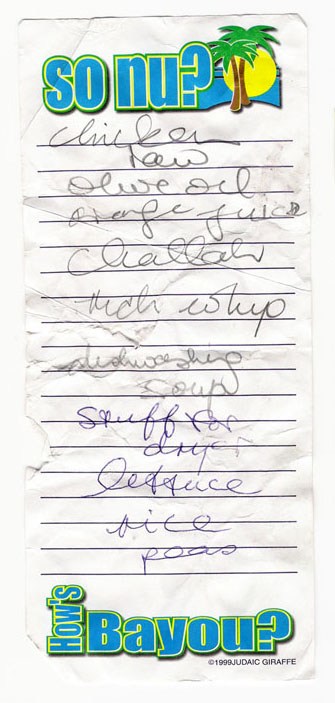 so nu?
chicken
raw
olive oil
orange juice
challah
rich whip
dishwashing
soap
stuff for
dryer
lettuce
rice
peas
How's
Bayou?
©1999JUDAIC GIRAFFE